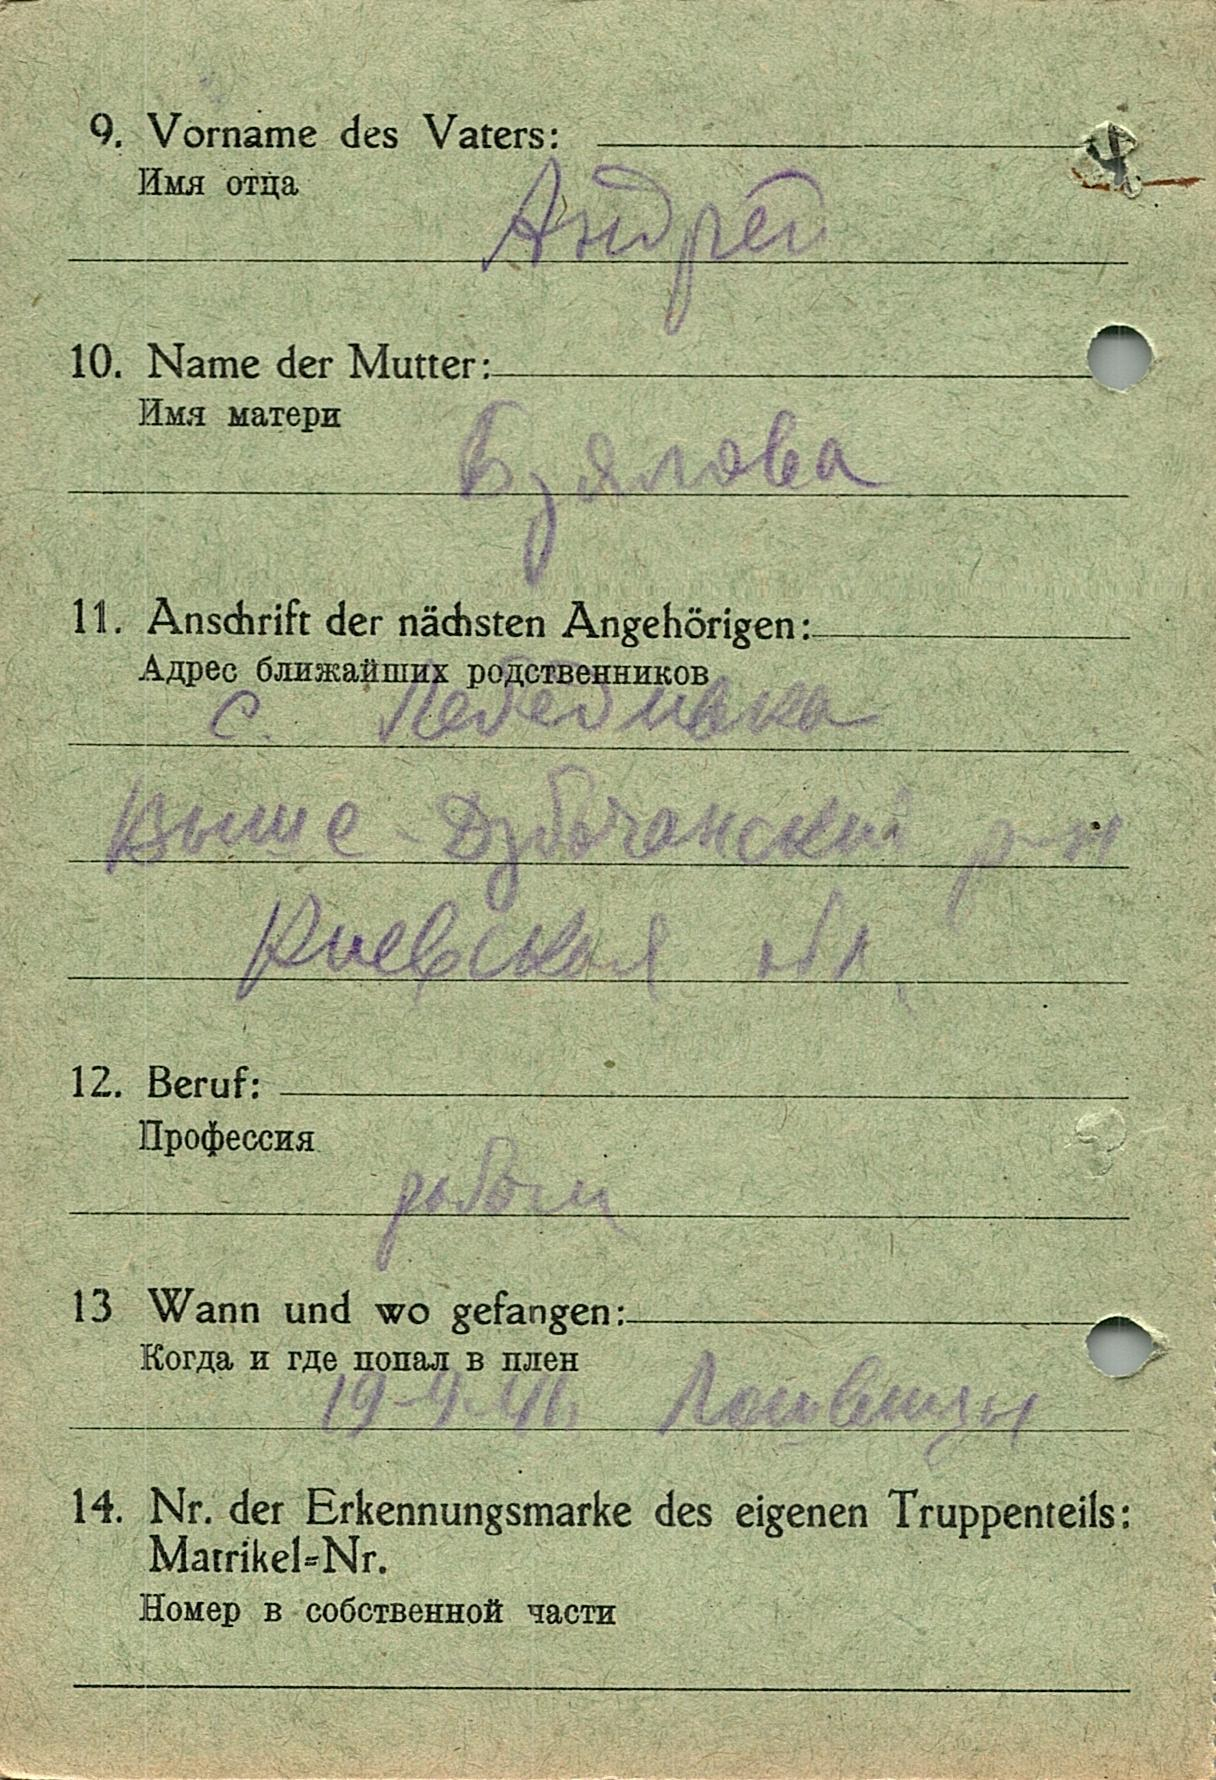 9. Vorname des Vaters:
Имя отца
Андрей
10. Name der Mutter:
Имя матери
11. Anschrift der nächsten Angehörigen:
Адрес ближайших родственников
с. Лебедивка
Выше-Дубочанский р-н
Киевская обл.
12. Beruf:
Профессия
13 Wann und wo gefangen:
Когда и где попал в плен
19-9-41.
14. Nr. der Erkennungsmarke des eigenen Truppenteils:
Matrikel=Nr.
Номер в собственной части